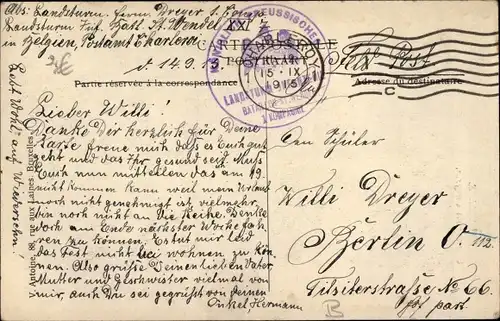 Abs: Landsturm. Herm. Dreyer 1. Komp.
Landsturm Inf. Batl. St. Wendel XXI
in Belgien, Postamt Charleroi
d 14.9.15
CARTE POSTALE
POSTKAART
Feld-Post
Partie réservée à la correspondance
Adresse du destinataire
CHARLEROI
15-IX
1915
KÖNIGL. PREUSSISCHEN
LANDSTURM
1 KOMPAGNIE
Lieber Willi!
Danke Dir herzlich für Deine
Karte freue mich daß es Euch gut
geht und daß Ihr gesund seid. Muß
Euch nun mitteilen das am 19.
nicht kommen kann weil mein Urlaub
noch nicht genehmigt ist vielmehr
bin noch nicht an die Reihe. Denke
doch am Ende nächster Woche fah-
ren zu können. Es tut mir leid
das Fest nicht bei wohnen zu kön-
nen. Also grüße Deinen lieben Vater
Mutter und Geschwister vielmal von
mir, auch Du sei gegrüßt von Deinen
Onkel, Hermann
Lebt Wohl auf Wiedersehn!
Antoine 88, rue aux Laines Bruxelles
Den Schüler
Willi Dreyer
Berlin O. 112
Tilsiterstraße No 66
part.